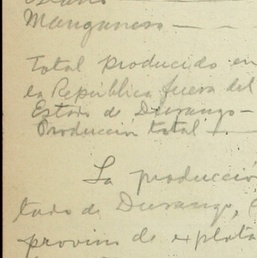 Manganeso
Total producido en
la República fuera del
Estado de Durango
Producción total
La producció
tado de Durango,
provino de explota